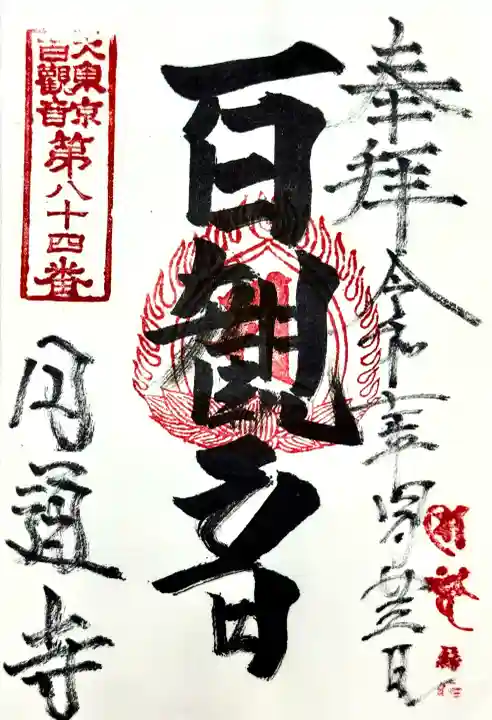 奉拝 令和六年四月廿三日
百観音
大東京
百觀音
第八十四番
円通寺